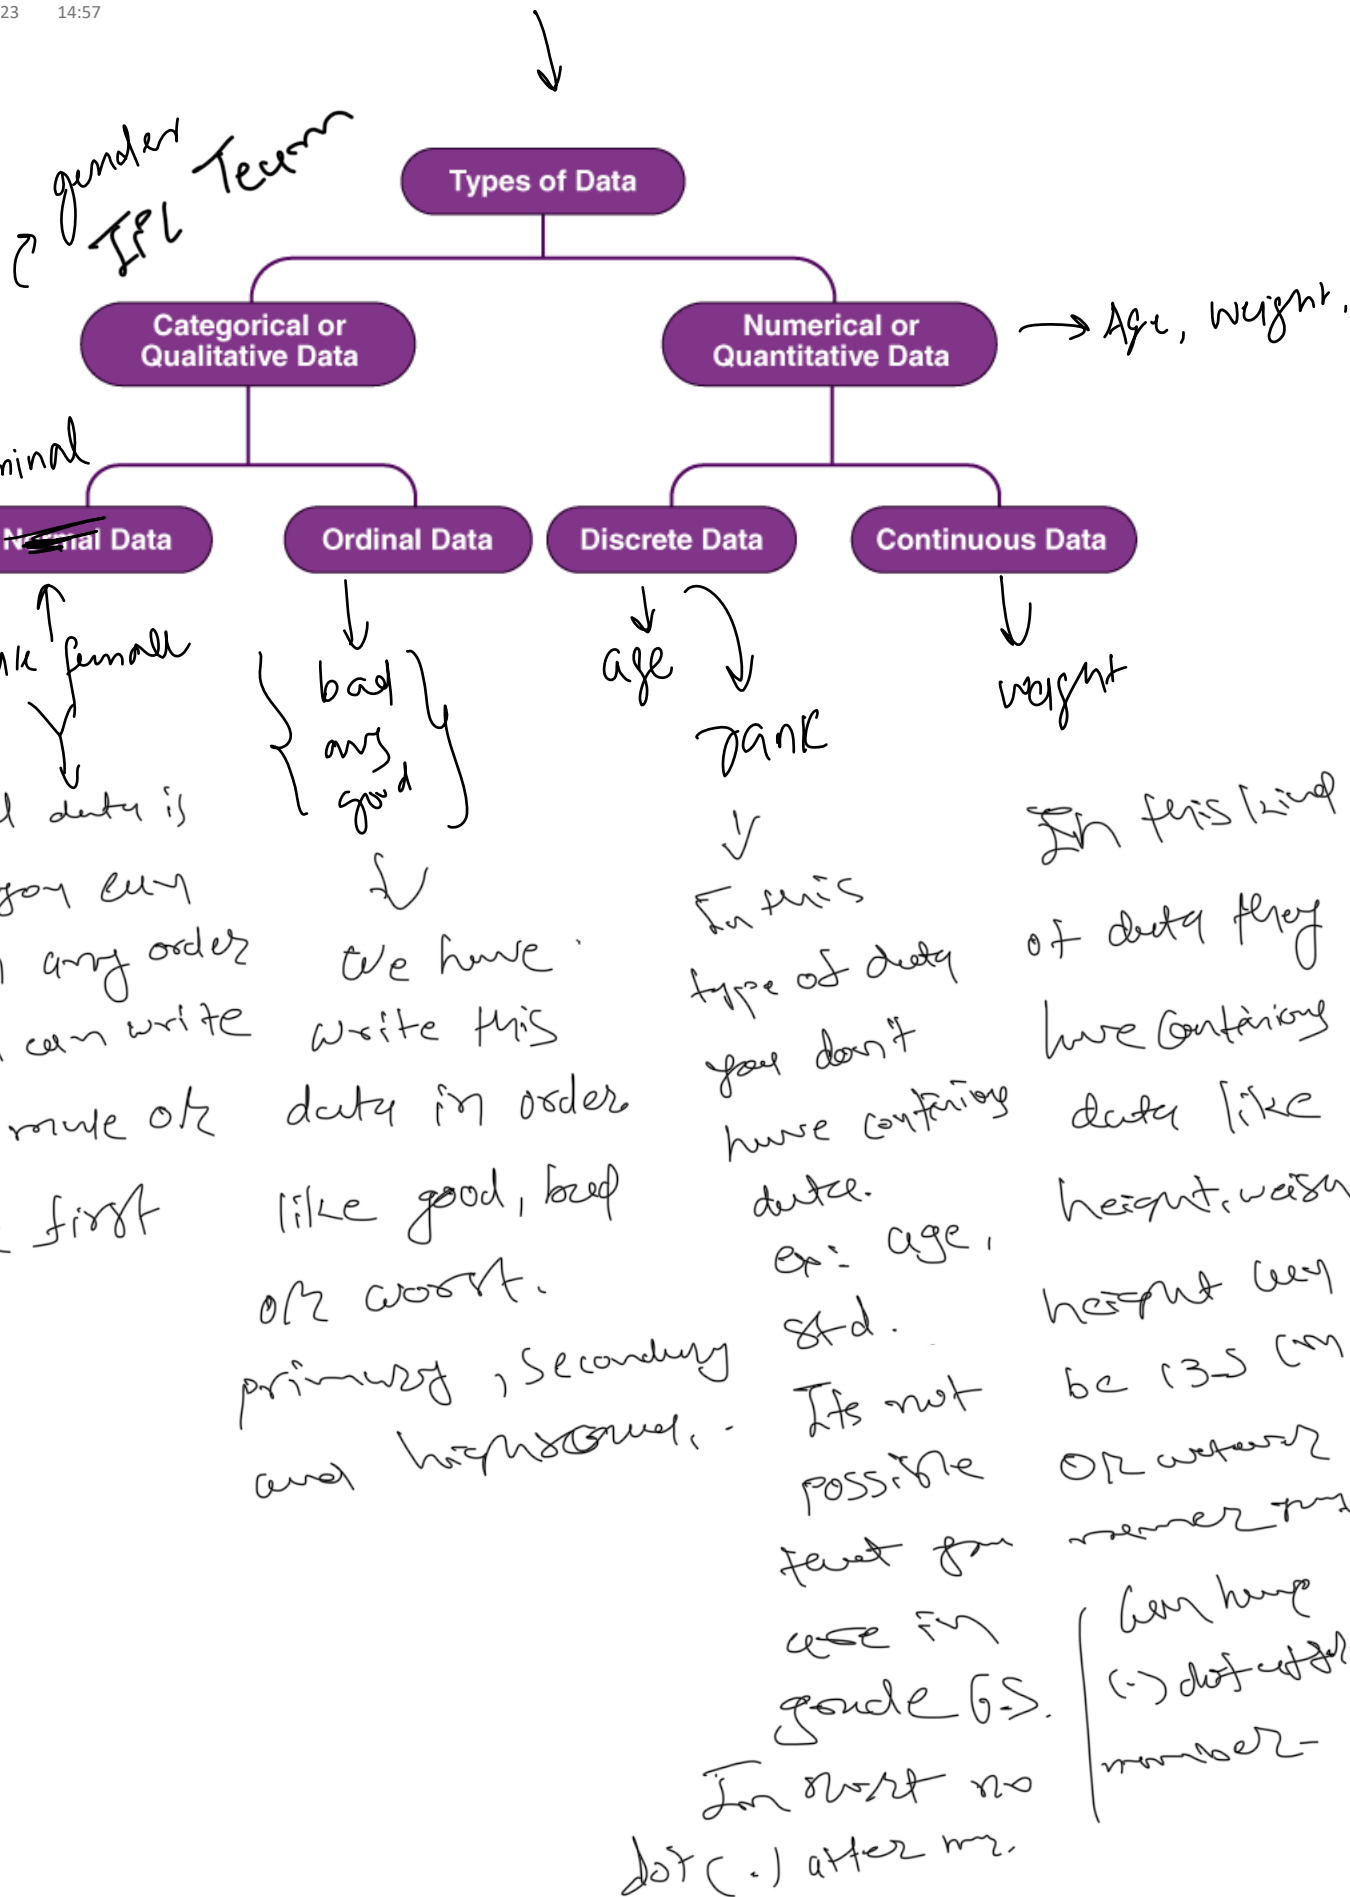 23 14:57
gender
IPL Team
Types of Data
Categorical or
Qualitative Data
Numerical or
Quantitative Data
Age, weight,
minal
Data
Ordinal Data
Discrete Data
Continuous Data
female
bad
avg
good
age
rank
weight
data is
you can
any order
can write
male or
first
We have
write this
data in order
like good, bad
or worst.
primary, secondary
and
In this
type of data
you don't
have continious
data.
ex: age,
std.
Its not
possible
that you
are in
grade 6.5.
In short no
dot (.) after nr.
In this kind
of data they
have continious
data like
height, weigh
height can
be 13.5 cm
or
can have
(.) dot after
number